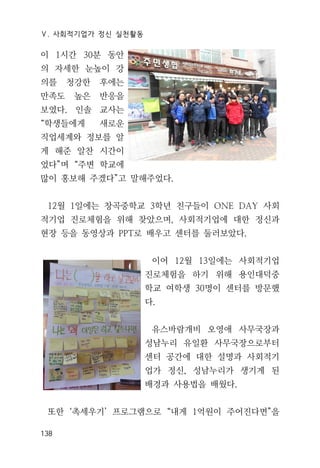 Ⅴ. 사회적기업가 정신 실천활동
이 1시간 30분 동안
의 자세한 눈높이 강
의를 청강한 후에는
만족도 높은 반응을
보였다. 인솔 교사는
“학생들에게 새로운
직업세계와 정보를 알
게 해준 알찬 시간이
였다”며 “주변 학교에
많이 홍보해 주겠다”고 말해주었다.
주민생협
12월 1일에는 창곡중학교 3학년 친구들이 ONE DAY 사회
적기업 진로체험을 위해 찾았으며, 사회적기업에 대한 정신과
현장 등을 동영상과 PPT로 배우고 센터를 둘러보았다.
이어 12월 13일에는 사회적기업
진로체험을 하기 위해 용인대덕중
학교 여학생 30명이 센터를 방문했
다.
유스바람개비 오영애 사무국장과
성남누리 유일환 사무국장으로부터
센터 공간에 대한 설명과 사회적기
업가 정신, 성남누리가 생기게 된
배경과 사용법을 배웠다.
또한 ‘촉세우기’ 프로그램으로 “내게 1억원이 주어진다면”을
138